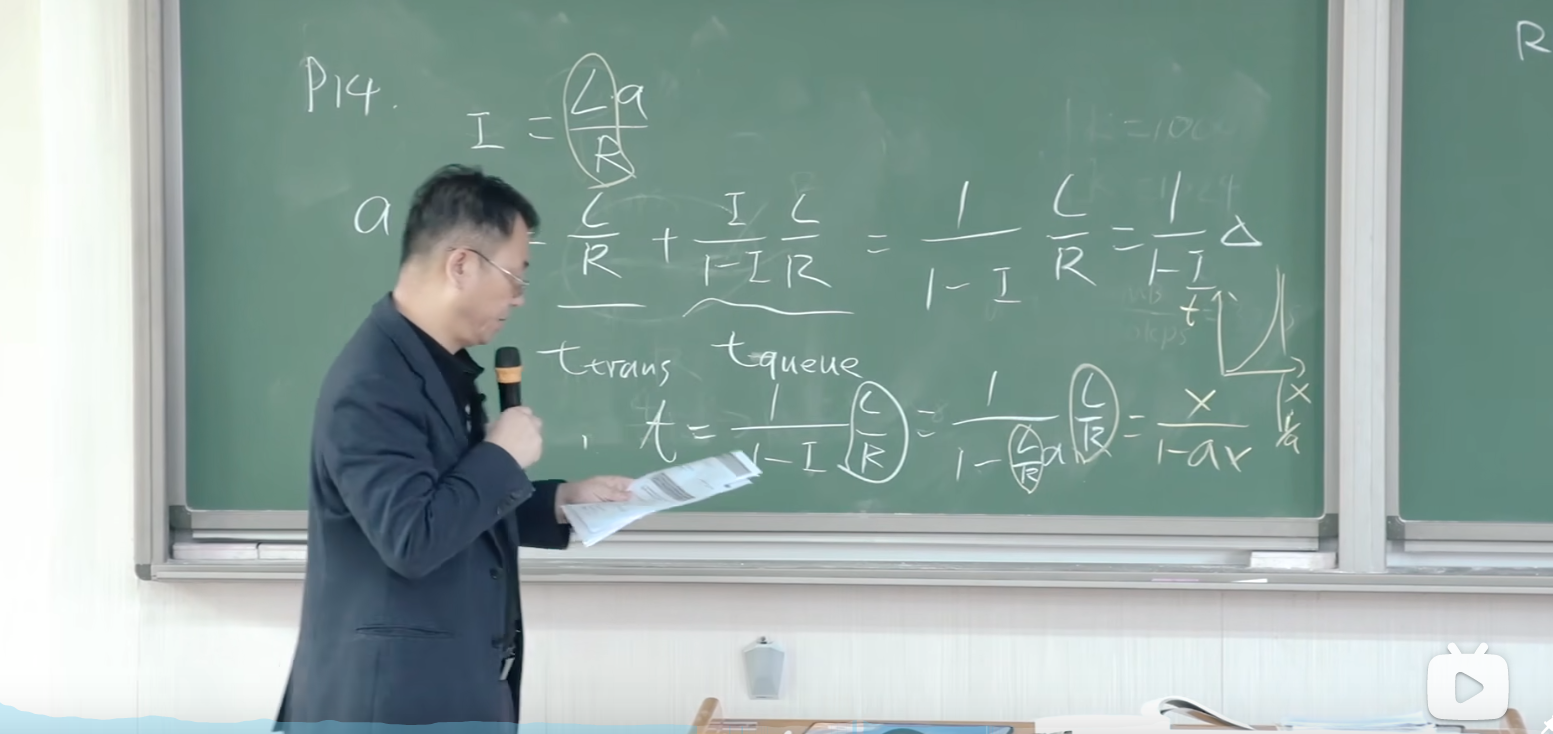 P14.
I = L·a / R
a = L/R + I/(1-I) L/R = 1/(1-I) L/R = 1/(1-I) Δ
t trans t queue
t = 1/(1-I) L/R = 1/(1-L/R a) L/R = x/(1-ax)
t
x
1/a
R